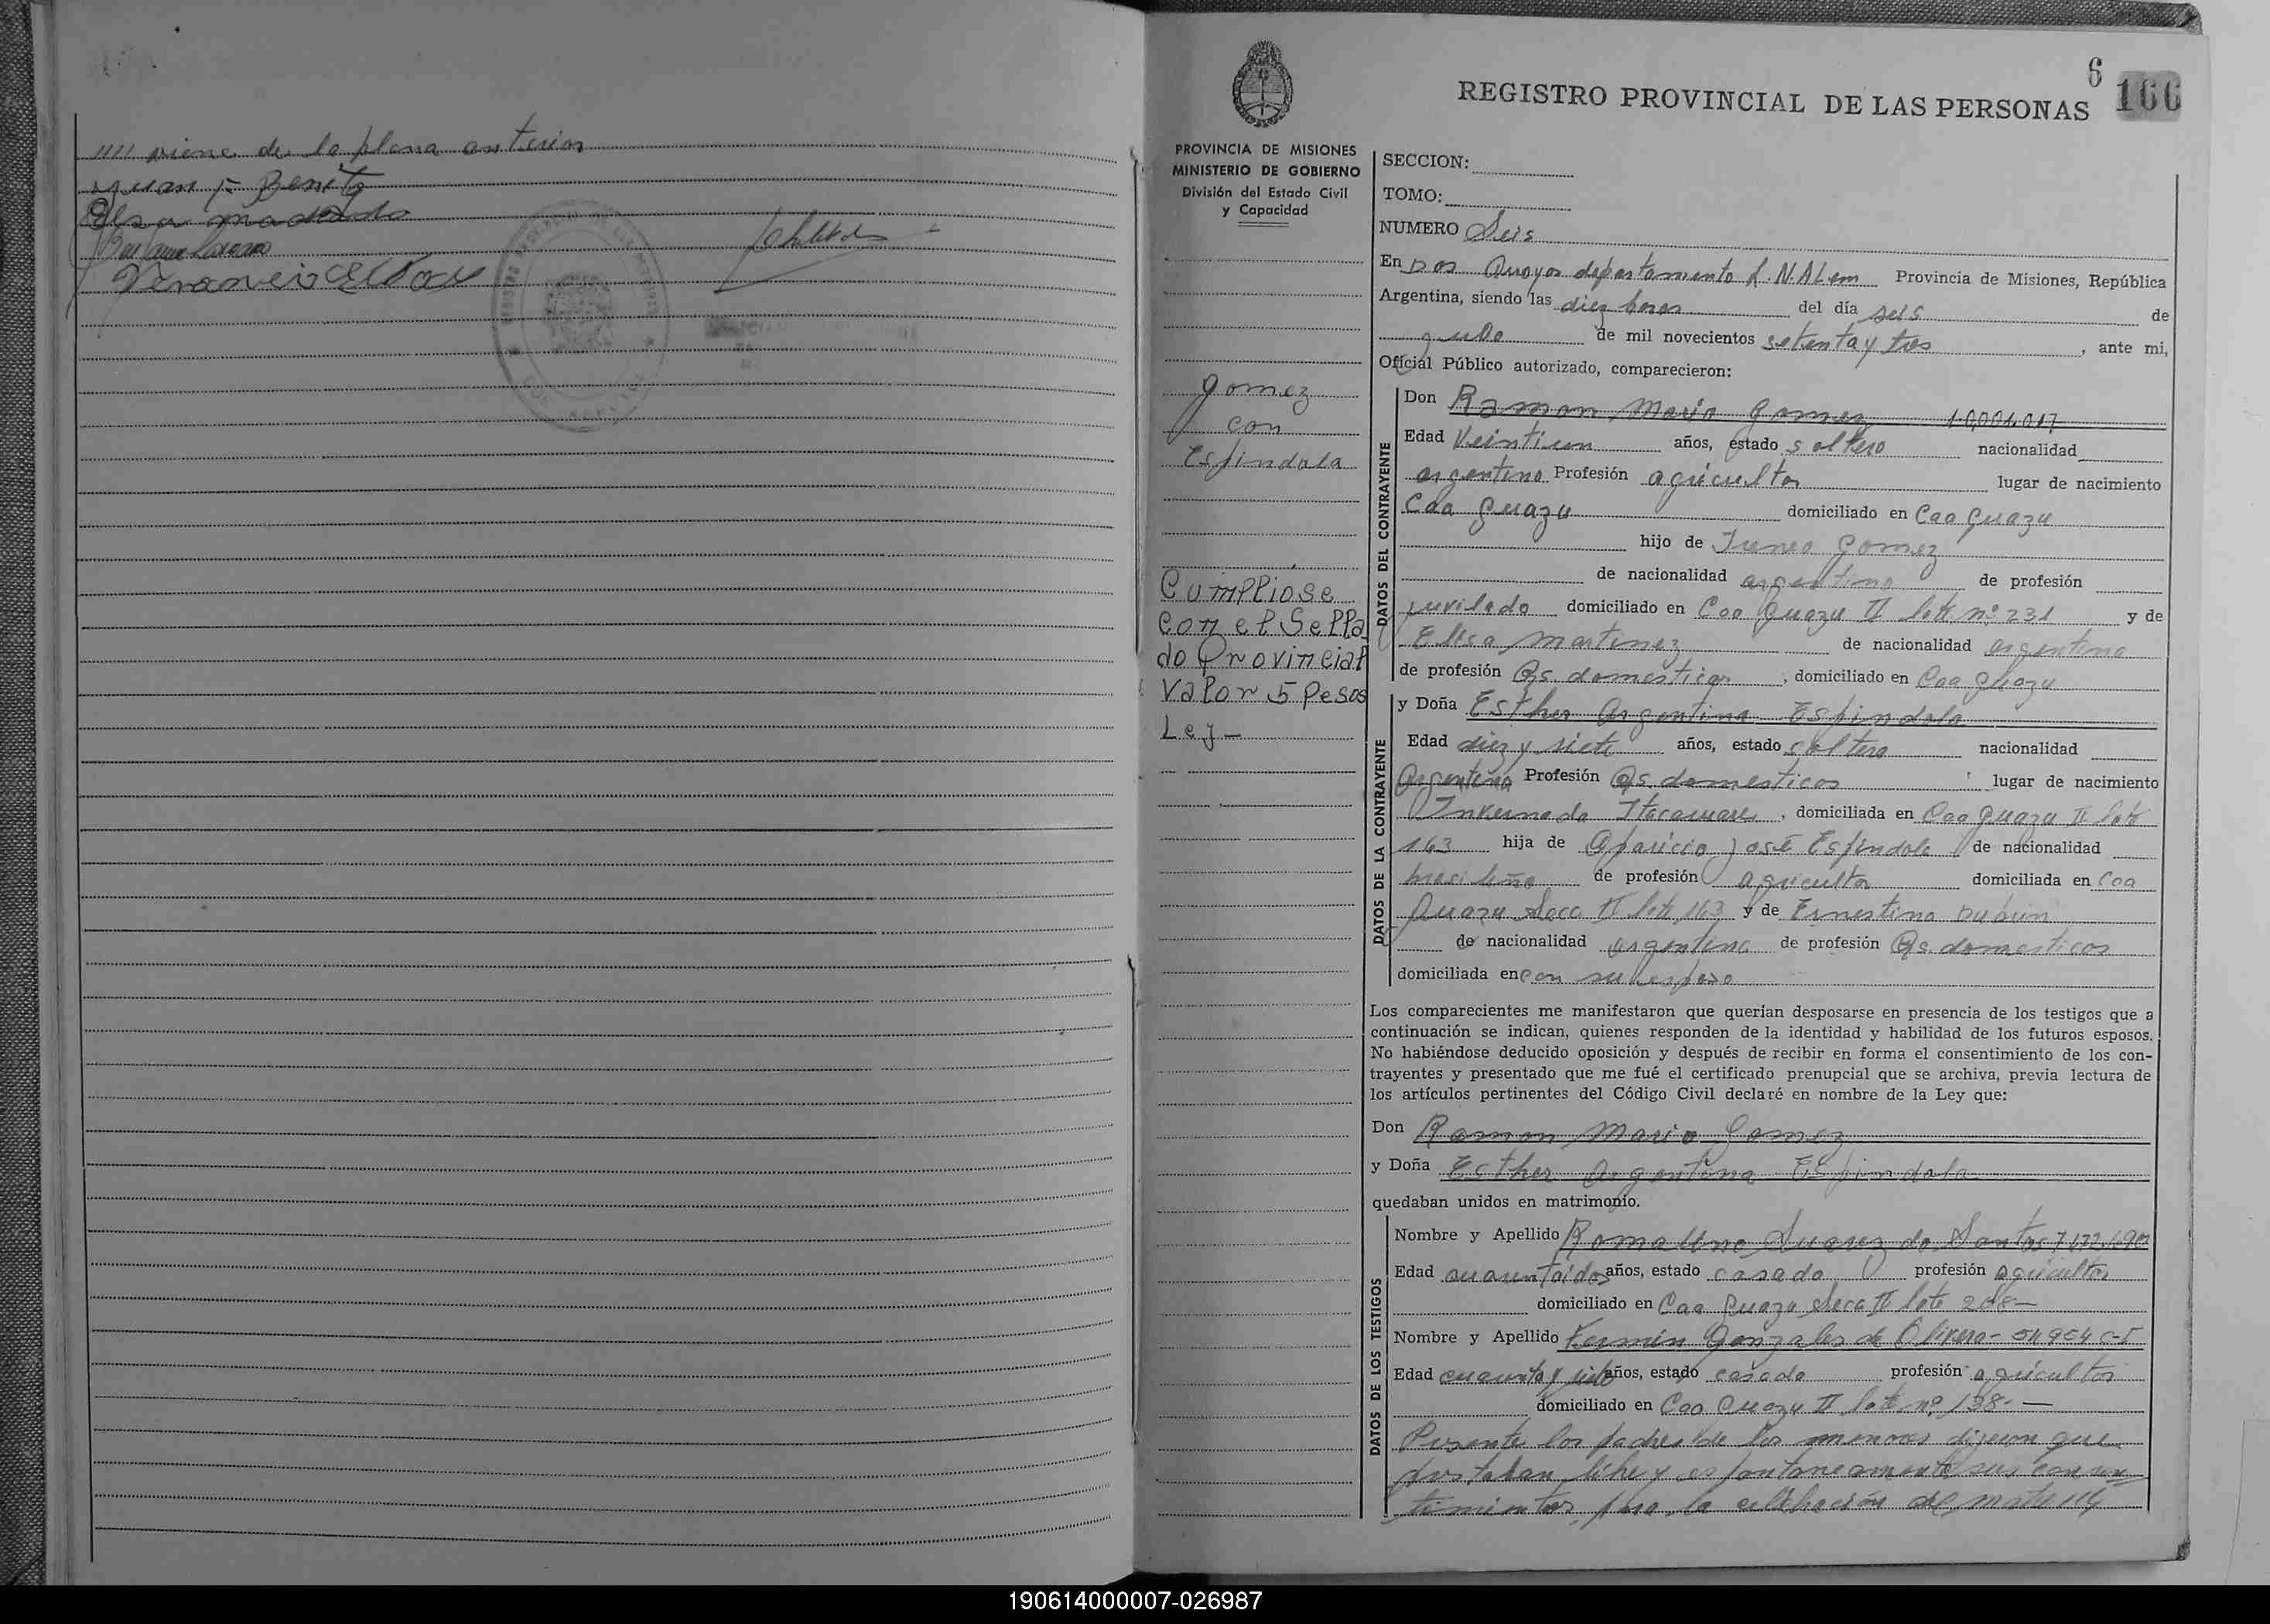 //// viene de la plana anterior
Juan F. Benitez
Elsa
REGISTRO PROVINCIAL DE LAS PERSONAS
6
166
PROVINCIA DE MISIONES
MINISTERIO DE GOBIERNO
División del Estado Civil
y Capacidad
Gomez
con
Espindola
Cumpliose
con el Sella
do Provincial
Valor 5 Pesos
Ley-
SECCION:
TOMO:
NUMERO Seis
En Dos Arroyos departamento L.N.ALem Provincia de Misiones, República
Argentina, siendo las diez horas del día seis de
de mil novecientos setenta y tres, ante mi,
Oficial Público autorizado, comparecieron:
DATOS DEL CONTRAYENTE
Don Ramon Mario Gomez 10.001.017
Edad Veintiun años, estado soltero nacionalidad
argentino Profesión agricultor lugar de nacimiento
Caa Guazu domiciliado en Caa Guazu
hijo de Ireneo Gomez
de nacionalidad argentino de profesión
juvilado domiciliado en Caa Guazu II lote nº 231 y de
Elisa Martinez de nacionalidad argentina
de profesión Qs. domesticos, domiciliado en Caa Guazu
DATOS DE LA CONTRAYENTE
y Doña Esther Argentina Espindola
Edad diez y siete años, estado soltera nacionalidad
Argentina Profesión Qs. domesticos lugar de nacimiento
Invernada Itacaruare, domiciliada en Caa Guazu II lote
163 hija de Aparicio José Espindola de nacionalidad
brasileño de profesión agricultor domiciliada en Caa
Guazu Secc II lote 163 y de Ernestina
de nacionalidad argentina de profesión Qs. domesticos
domiciliada en con su esposo
Los comparecientes me manifestaron que querían desposarse en presencia de los testigos que a
continuación se indican, quienes responden de la identidad y habilidad de los futuros esposos.
No habiéndose deducido oposición y después de recibir en forma el consentimiento de los con-
trayentes y presentado que me fué el certificado prenupcial que se archiva, previa lectura de
los artículos pertinentes del Código Civil declaré en nombre de la Ley que:
Don Ramon Mario Gomez
y Doña Esther Argentina Espindola
quedaban unidos en matrimonio.
DATOS DE LOS TESTIGOS
Nombre y Apellido Romalino Suarez do Santos
Edad cuarentaidos años, estado casado profesión agricultor
domiciliado en Caa Guazu Secc II lote 208-
Nombre y Apellido Fermin Gonzales de Olivera-
Edad cuarenta y años, estado casado profesión agricultor
domiciliado en Caa Guazu II lote nº 138.-
Presente los padres de los menores dijeron que
prestaban libre y espontaneamente sus consen
timientos para la celebración del matr ////
190614000007-026987